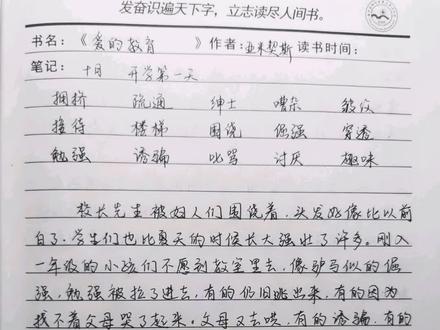 发奋识遍天下字，立志读尽人间书。
书名：《 爱的教育 》作者：亚米契斯 读书时间：
笔记： 十月 开学第一天
拥挤 疏通 绅士 嘈杂 皱纹
接待 楼梯 围绕 倔强 穿透
勉强 诱骗 叱骂 讨厌 趣味
校长先生被妇人们围绕着，头发好像比以前
白了，学生们也比夏天的时候长大强壮了许多。刚入
一年级的小孩们不愿到教室里去，像驴马似的倔
强，勉强被拉了进去，有的仍旧逃出来，有的因为
找不着父母哭了起来。父母又去哄，有的诱骗，有的